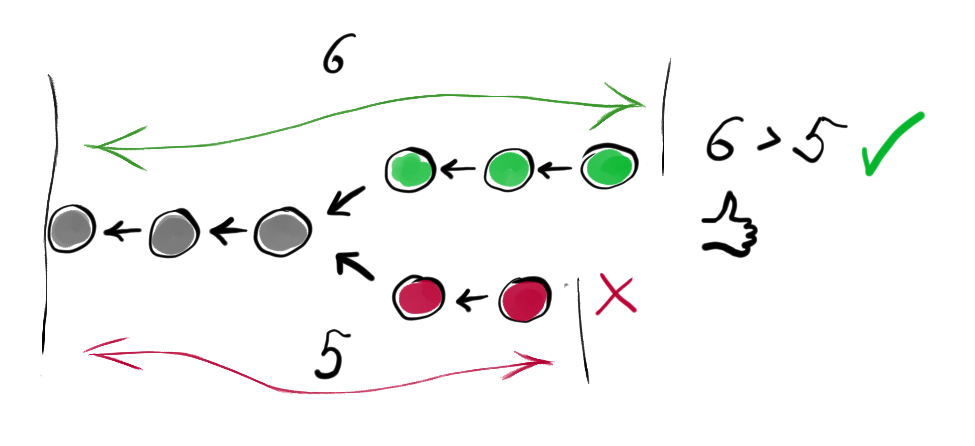 6
6 > 5
5